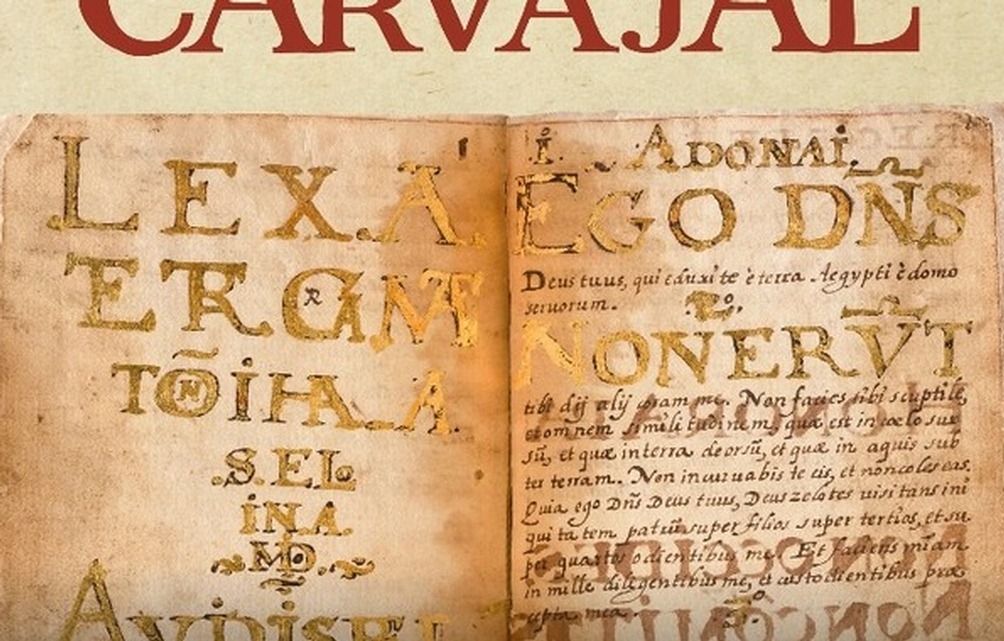 CARVAJAL
LEX.A.
ERGM
S.EL
INA.
MD.
AVDISRL
I. ADONAI.
EGO DÑS
Deus tuus, qui eduxi te è terra Aegypti è domo
seruorum.
2°.
NON ERV̄T
tibi dij alij coram me. Non facies sibi sculptile,
et omnem similitudinem, quæ est in cælo sue
sũ, et quæ in terra deorsũ, et quæ in aquis sub
ter terram. Non incuruabis te eis, et non coles eas.
Quia ego Dñs Deus tuus, Deus zelotes visitans ini
quitatem patrũ super filios super tertios, et su
per quartos odientibus me. Et faciens miam
in mille diligentibus me, et custodientibus præ
cepta mea.
3°.